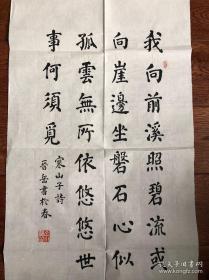 我向前溪照碧流或
向崖邊坐磐石心似
孤雲無所依悠悠世
事何須覓
寒山子詩
晉岳書於春